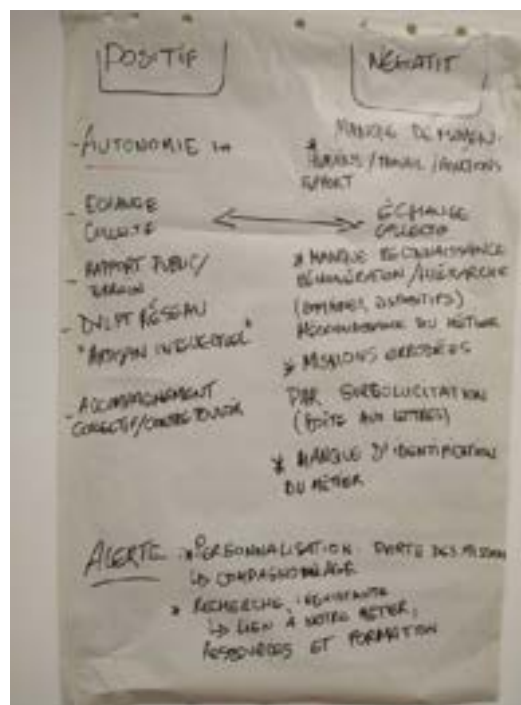 POSITIF
- AUTONOMIE
- ECHANGE
COLLECTIF
- RAPPORT PUBLIC/
TERRAIN
- DVLPT RÉSEAU
"ARTISAN INTELLECTUEL"
- ACCOMPAGNEMENT
COLLECTIF/CONTRE POUVOIR
NÉGATIF
* MANQUE DE MOYENS
HUMAINS/TRAVAIL/FONCTIONS
SUPPORT
ÉCHANGE
COLLECTIF
* MANQUE RECONNAISSANCE
RÉMUNÉRATION/HIÉRARCHIE
MÉCONNAISSANCE DU MÉTIER
* MISSIONS
PAR SURSOLLICITATION
(BOÎTE AUX LETTRES)
* MANQUE D'IDENTIFICATION
DU MÉTIER
ALERTE : * PERSONNALISATION PORTE DES MISSIONS
↳ COMPAGNONNAGE
* RECHERCHE
↳ LIEN A NOTRE METIER,
RESSOURCES ET FORMATION